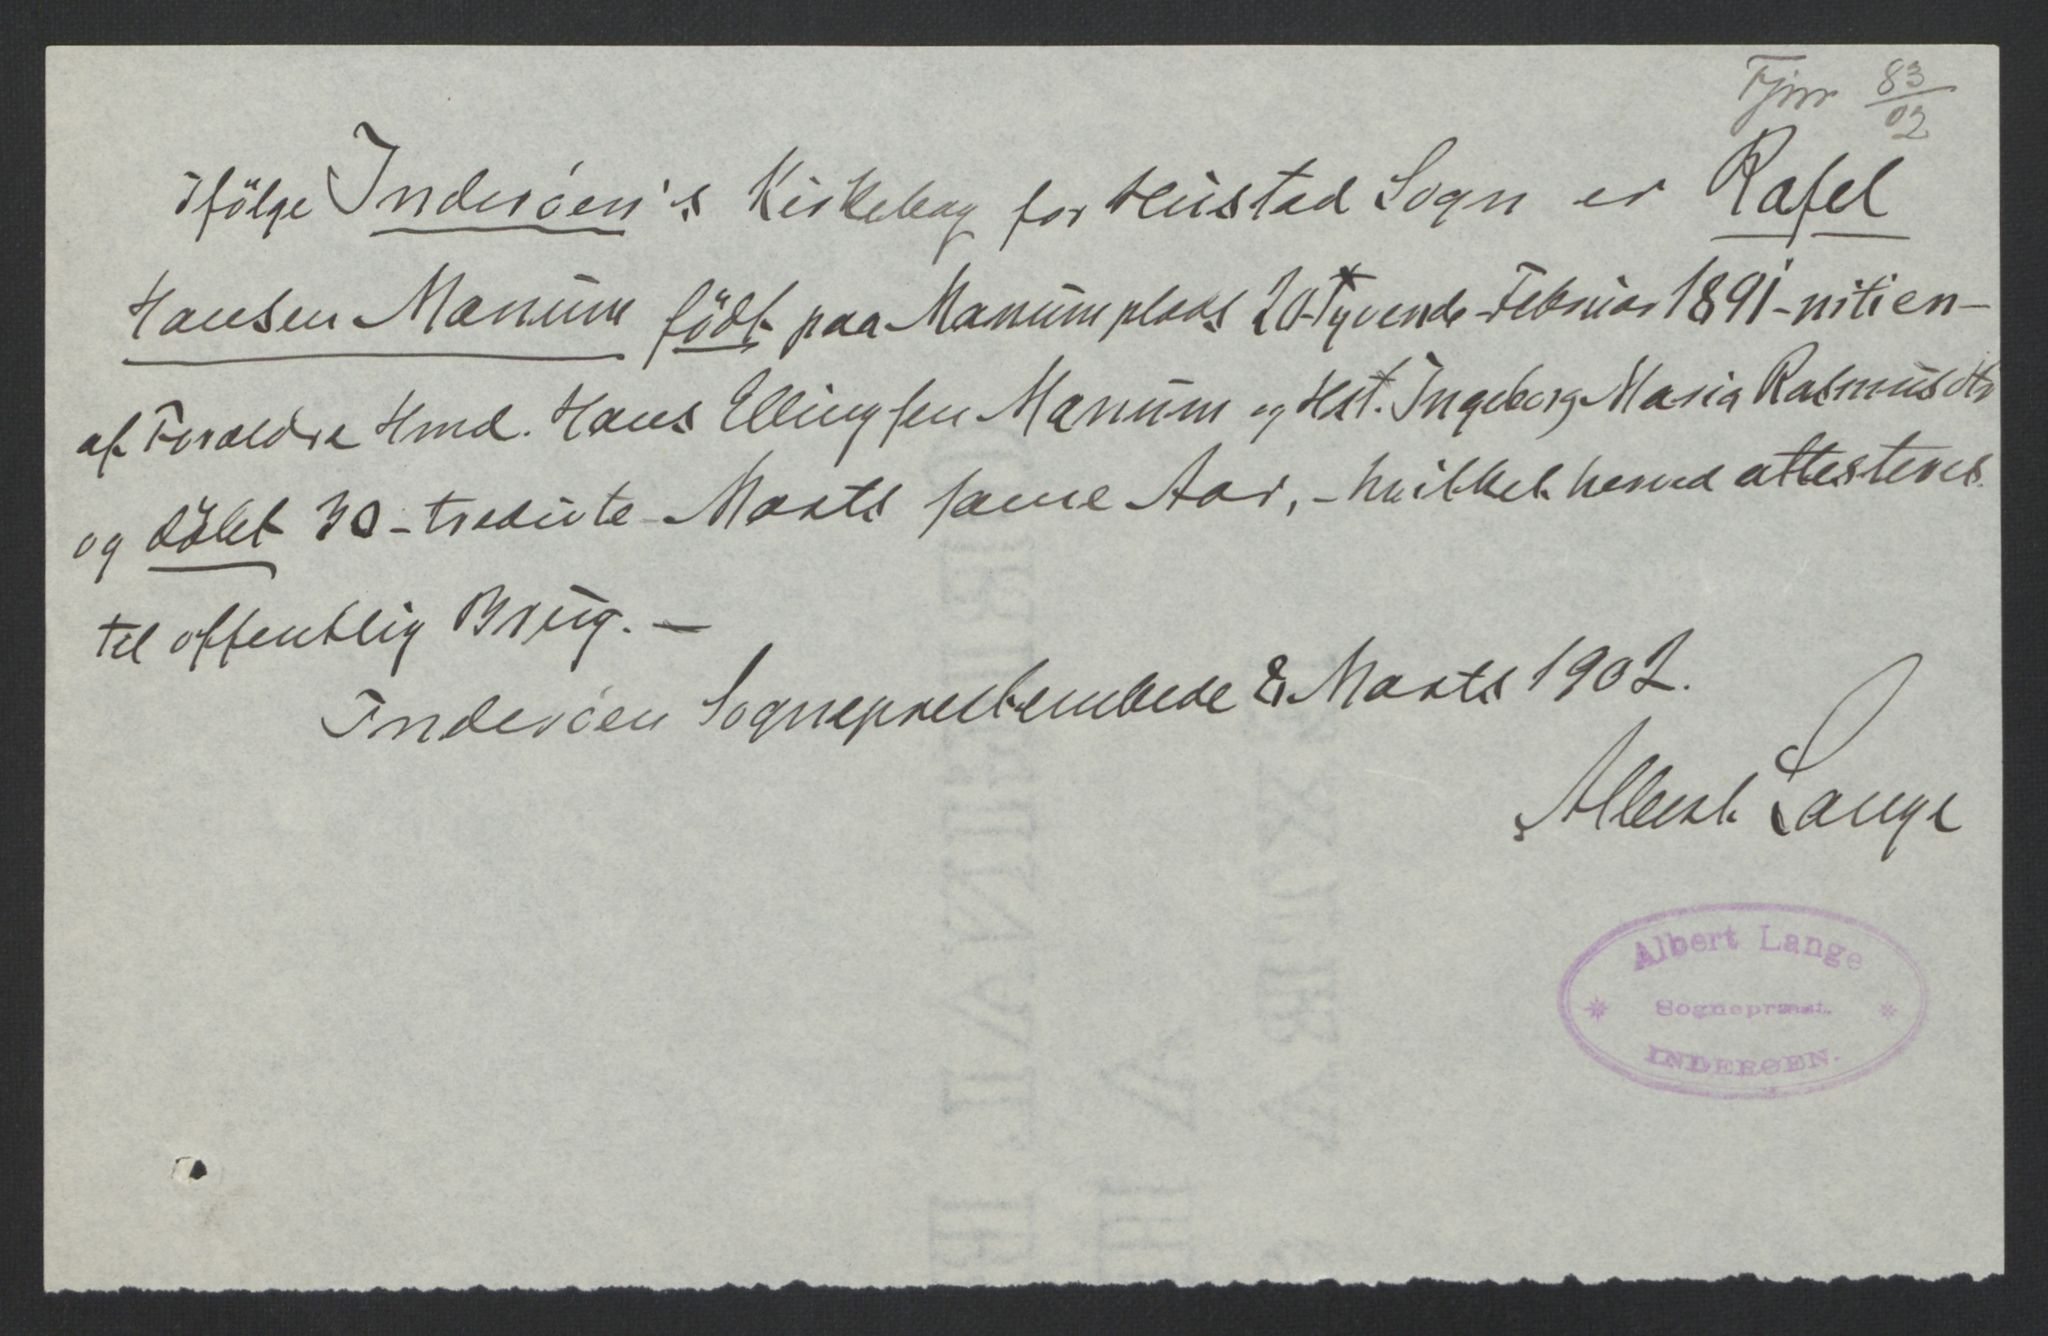 Fjnr 83/02
Ifölge Inderöen's Kirkebog for Hustad Sogn er Rafel
Hansen Manum födt paa Manumplads 20-Tyvende-Februar 1891-nitien-
af Foraeldre Hmd. Hans Ellingsen Manum og Hst. Ingeborg Maria Rasmusdtr
og döbt 30-tredivte-Marts samme Aar, - hvilket herved attesteres
til offentlig Brug. -
Inderöen Sogneprestembede 8 Marts 1902.
Albert Lange
Albert Lange
Sognepræst.
INDERØEN.